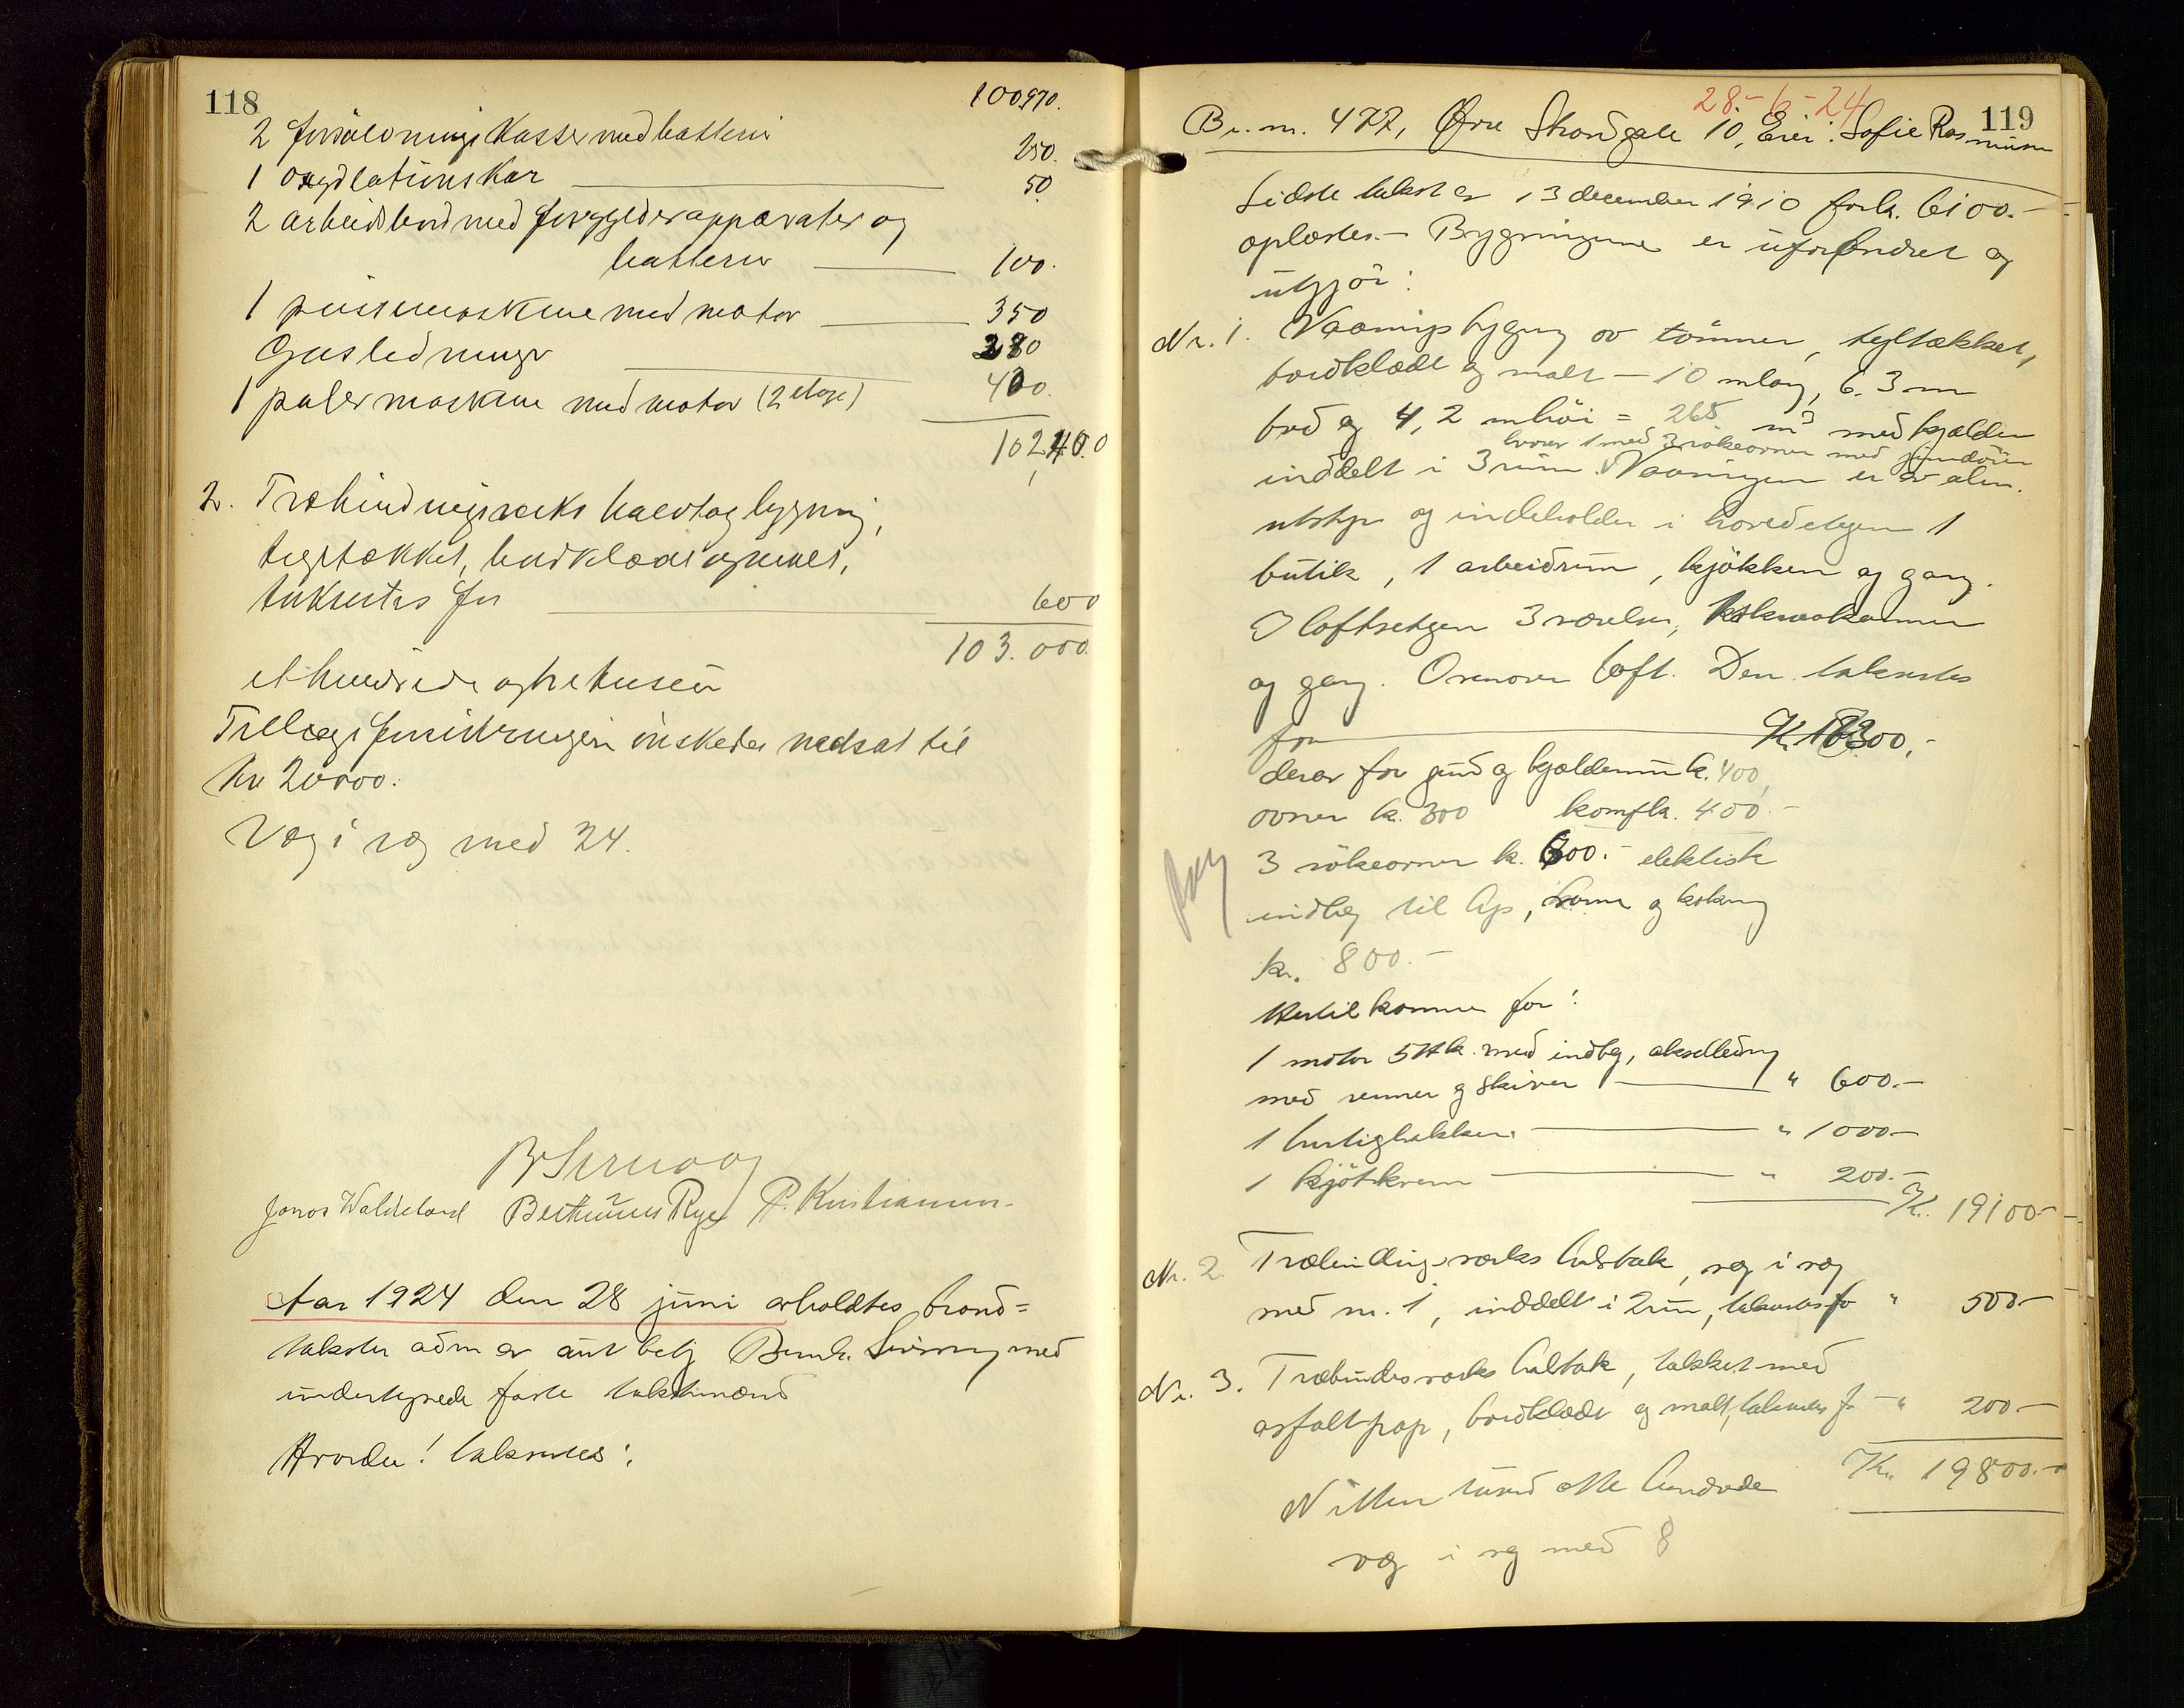 118
100970.
2 forsølvnings Kasser med batteri 250.
1 oxydlations Kar 50.
2 arbeidsbord med forgylderapparater og
batterier 100.
1 pussemaskine med motor 350
Gasledninger 280
1 polermaskine med motor (2 etage) 400.
102,400
2. Træbindingsverks halvtag bygning,
teglstækket, bordklædt og malt,
taksertes for 600
103.000.
et hundrede og tre tusen
Tillægsforsikringen ønskedes nedsat til
Kr 20000.
Væg i væg med 24.
Jonas Waldeland Berthinius Rye P. Kristiansen.
Aar 1924 den 28 juni avholdtes brand=
takster adm av
undertegnede faste takstmænd
Hvorda! taksertes:
28-6-24
119
Br. nr. 477, Øvre Strandgate 10, Eier: Sofie Rasmussen
Sidste takst er 13 december 1910 for kr. 6100.-
oplæstes.- Bygningene er uforandret og
utgjør:
Nr. 1. Vaaningsbygning av tømmer, tegltækket,
bordklædt og malt - 10 m lang, 6.3 m
bred og 4,2 m høi = 265 m3 med kjælder
hvorav 1 med 3 røkeovner med jerndører
inddelt i 3 rum. Vaaningen er av alm.
utstyr og indeholder i hovedetagen 1
butik, 1 arbeidsrum, kjøkken og gang.
I loftsetagen 3 værelser,
og gang. Ovenover loft. Den taksertes
for Kr. 17300,-
derav for grund og kjældermur k. 400,
ovner k. 300 komf k. 400.-
3 røkeovner k. 600.- elektrisk
indlæg til lys, varme og kokning
kr. 800.-
Hertil kommer for:
1 motor 5 Hk. med indlæg, akselledning
med remmer og skiver " 600.-
1 hurtighakker " 1000-
1 kjøtkvern " 200.-
Kr. 19100-
Nr. 2 Træbindingsverks halvtak, væg i væg
med nr. 1, inddelt i 2 rum, taksertes for " 500-
Nr. 3. Træbindesverks halvtak, tækket med
asfaltpap, bordklædt og malt, taksertes for - " 200-
Kr. 19800.-
Nitten tusind otte hundrede
væg i væg med 8